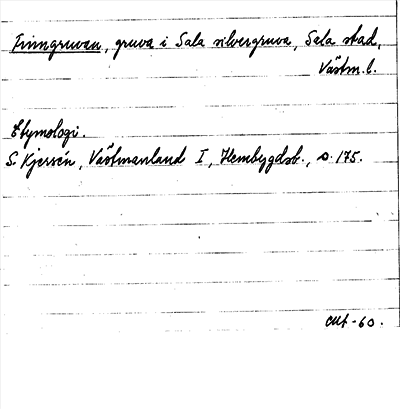 Finngruvan, gruva i Sala silvergruva, Sala stad,
Västm. l.
Etymologi.
S. Kjersén, Västmanland I, Hembygdsb., s. 175.
-60.